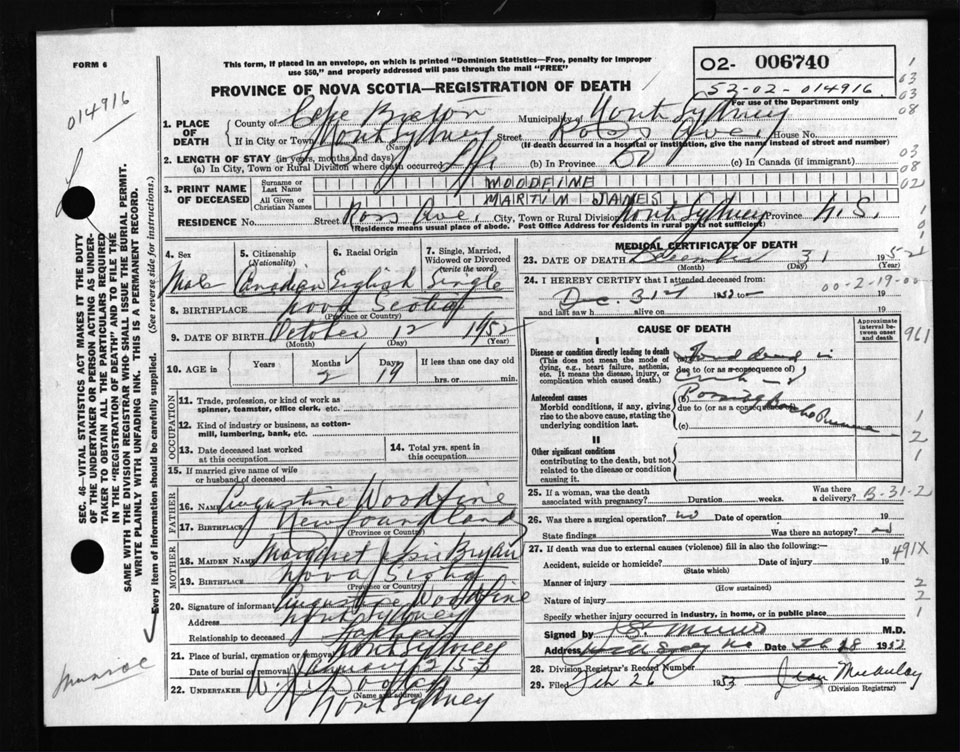 FORM 6
This form, if placed in an envelope, on which is printed "Dominion Statistics—Free, penalty for improper
use $50," and properly addressed will pass through the mail "FREE"
02- 006740
52-02-014916
For use of the Department only
014916
PROVINCE OF NOVA SCOTIA—REGISTRATION OF DEATH
1. PLACE OF DEATH
County of Cape Breton Municipality of North Sydney
If in City or Town North Sydney Street Ross Ave. House No.
(Name) (If death occurred in a hospital or institution, give the name instead of street and number)
2. LENGTH OF STAY (in years, months and days)
(a) In City, Town or Rural Division where death occurred Life (b) In Province Do (c) In Canada (if immigrant)
3. PRINT NAME OF DECEASED
Surname or Last Name WOODFINE
All Given or Christian Names MARTIN JAMES
RESIDENCE No. Street Ross Ave. City, Town or Rural Division North Sydney Province N.S.
(Residence means usual place of abode. Post Office Address for residents in rural parts not sufficient)
4. Sex Male
5. Citizenship (Nationality) Canadian
6. Racial Origin English
7. Single, Married, Widowed or Divorced (write the word) Single
8. BIRTHPLACE Nova Scotia
(Province or Country)
9. DATE OF BIRTH October 12 1952
(Month) (Day) (Year)
10. AGE in Years Months 2 Days 19 If less than one day old
hrs. or min.
OCCUPATION
11. Trade, profession, or kind of work as
spinner, teamster, office clerk, etc.
12. Kind of industry or business, as cotton-
mill, lumbering, bank, etc.
13. Date deceased last worked
at this occupation
14. Total yrs. spent in
this occupation
15. If married give name of wife
or husband of deceased
FATHER
16. NAME Augustine Woodfine
17. BIRTHPLACE Newfoundland
(Province or Country)
MOTHER
18. MAIDEN NAME Margaret Bryan
19. BIRTHPLACE Nova Scotia
(Province or Country)
20. Signature of informant Augustine Woodfine
Address North Sydney
Relationship to deceased Father
21. Place of burial, cremation or removal North Sydney
Date of burial or removal January 2/53
22. UNDERTAKER W. J. Dooley
(Name and address)
North Sydney
MEDICAL CERTIFICATE OF DEATH
23. DATE OF DEATH December 31 1952
(Month) (Day) (Year)
24. I HEREBY CERTIFY that I attended deceased from:
Dec. 31st 1952 to 19
00-2-19-00
and last saw h alive on 19
CAUSE OF DEATH
Approximate interval between onset and death
I
Disease or condition directly leading to death
(This does not mean the mode of
dying, e.g., heart failure, asthenia,
etc. It means the disease, injury, or
complication which caused death.)
(a) Found dead in
due to (or as a consequence of)
Crib
Antecedent causes
Morbid conditions, if any, giving
rise to the above cause, stating the
underlying condition last.
(b)
due to (or as a consequence of)
(c)
II
Other significant conditions
contributing to the death, but not
related to the disease or condition
causing it.
25. If a woman, was the death
associated with pregnancy? Duration weeks. Was there
a delivery?
B-31-2
26. Was there a surgical operation? no Date of operation 19
State findings Was there an autopsy? no
27. If death was due to external causes (violence) fill in also the following:
Accident, suicide or homicide? Date of injury 19
(State which)
491X
Manner of injury
(How sustained)
Nature of injury
Specify whether injury occurred in industry, in home, or in public place
Signed by Munro M.D.
Address Date 1953
28. Division Registrar's Record Number
29. Filed Feb 26 1953 Jean Macaulay
(Division Registrar)
SEC. 46—VITAL STATISTICS ACT MAKES IT THE DUTY
OF THE UNDERTAKER OR PERSON ACTING AS UNDER-
TAKER TO OBTAIN ALL THE PARTICULARS REQUIRED
IN THE "REGISTRATION OF DEATH" AND TO FILE THE
SAME WITH THE DIVISION REGISTRAR WHO SHALL ISSUE THE BURIAL PERMIT.
WRITE PLAINLY WITH UNFADING INK. THIS IS A PERMANENT RECORD.
Every item of information should be carefully supplied. (See reverse side for instructions.)
Munroe
1
03
03
08
03
08
02
1
0
1
961
1
2
1
2
2
1